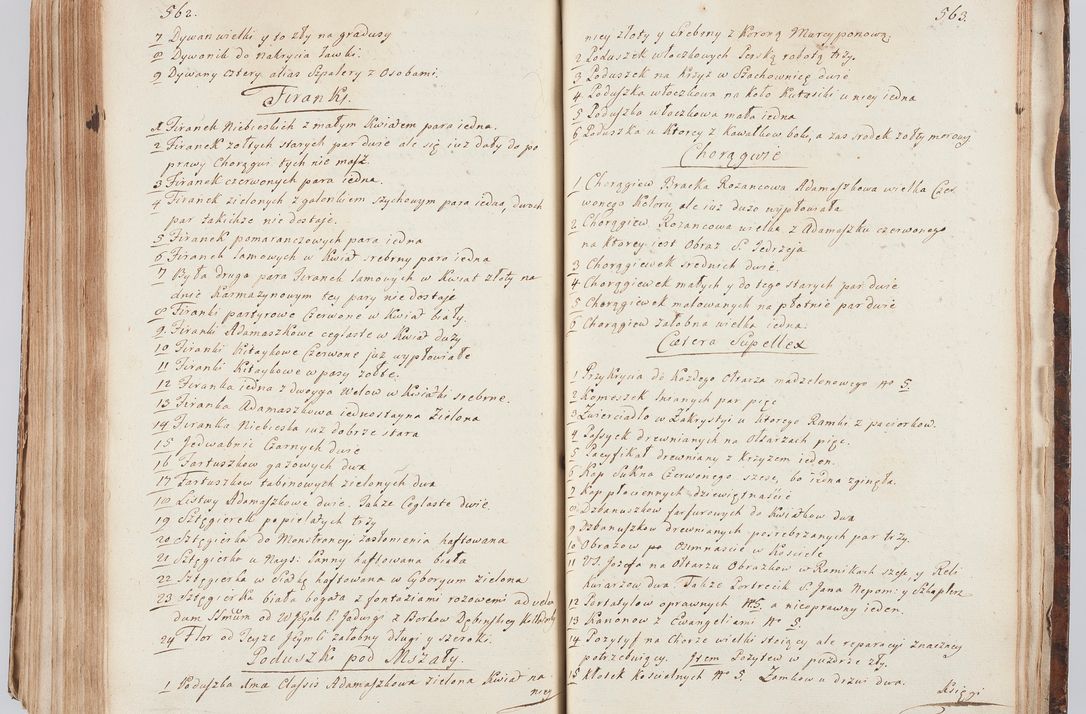 562.
7 Dywan wielki y to zły na gradusy
8 Dywonik do nakrycia ławki.
9 Dywany cztery alias Szpalery z Osobami.
Firanki.
1 Firanek Niebieskich z małym Kwiatem para iedna.
2 Firanek żołtych starych par dwie ale się iuż dały do po
prawy Chorągwi tych nie masz.
3 Firanek czerwonych para iedna.
4 Firanek zielonych z galonkiem szychowym para iedna, dwoch
par takichże nie dostaje.
5 Firanek pomaranczowych para iedna
6 Firanek lamowych w Kwiat srebrny para iedna
7 Była druga para Firanek lamowych w Kwiat złoty na
dnie Karmazynowym tey pary nie dostaje
8 Firanki partyrowe Czerwone w Kwiat biały.
9 Firanki Adamaszkowe ceglaste w Kwiat duży
10 Firanki Kitaykowe Czerwone już wypłowiałe
11 Firanki Kitaykowe w pasy żołte.
12 Firanka iedna z dwoyga Welow w Kwiatki srebrne.
13 Firanka Adamaszkowa iednostayna Zielona
14 Firanka Niebieska iuż dobrze stara
15 Jedwabnic Czarnych dwie
16 Fartuszkow gazowych dwa
17 Fartuszkow tabinowych zielonych dwa
18 Listwy Adamaszkowe dwie. Także Ceglaste dwie.
19 Sztęgierek popielatych trzy
20 Sztęgierka do Monstrancyi zasłonienia haftowana
21 Sztęgierka u Nays: Panny haftowana biała
22 Sztęgierka w Siatkę haftowana w Cyboryum zielona
23 Sztęgierka biała bogata z fontaziami rozowemi ad velan
dum SSmum od WJPani T. Jadwigi z Borkow Dębinskiey
24 Flor od żałobny długi y szeroki.
Poduszki pod Mszały.
1 Poduszka 1mae Classis Adamaszkowa zielona Kwiat na
niey
563.
niey złoty y Srebrny z Kororą Marcyponową.
2 Poduszek włoczkowych Perską robotą trzy.
3 Poduszek na Krzyż w Szachownicę dwie
4 Poduszka włoczkowa na koło Kutasiki u niey iedna
5 Poduszka włoczkowa mała iedna
6 Poduszka u Ktorey z Kawałkow boki, a zaś srodek żołty morowy
Chorągwie
1 Chorągiew Bracka Rożancowa Adamaszkowa wielka Czer
wonego Koloru, ale iuż dużo wypłowiała
2 Chorągiew Rożancowa wielka z Adamaszku czerwonego
na Ktorey iest Obraz S. Jędrzeja
3 Chorągiewek srednich dwie.
4 Chorągiewek małych y do tego starych par dwie
5 Chorągiewek malowanych na płotnie par dwie
6 Chorągiew żałobna wielka iedna.
Cætera Supellex
1 Przykrycia do Każdego Ołtarza nadzelonowego No 5.
2 Komeżek lnianych par pięć
3 Zwierciadło w Zakrystyi u ktorego Ramki z paciorkow.
4 Passyek drewnianych na Ołtarzach pięc.
5 Pacyfikał drewniany z Krzyżem ieden.
6 Kap Sukna Czerwonego szesc, bo iedna zginęła.
7 Kap płociennych dziewiętnaście
8 Dzbanuszkow farfurowych do Kwiatkow dwa
9 Dzbanuszkow drewnianych posrebrzanych par trzy.
10 Obrazow po Osmnascie w Kościele
11 U S. Jozefa na Ołtarzu Obrazkow w Ramikach szesc, y Reli
kwiarzew dwa. Także Portrecik S. Jana Nepom: y Szkaplerz
12 Portatylow oprawnych No 5. a nieoprawny ieden.
13 Kanonow z Ewangeliami No 8.
14 Pozytyf na Chorze wielki stoiący ale reparacyi znaczney
potrzebuiący. Item Pozytew w pudrze zły.
15 Kłotek Kościelnych No 3. Zamkow u drzwi dwa.
Księgi